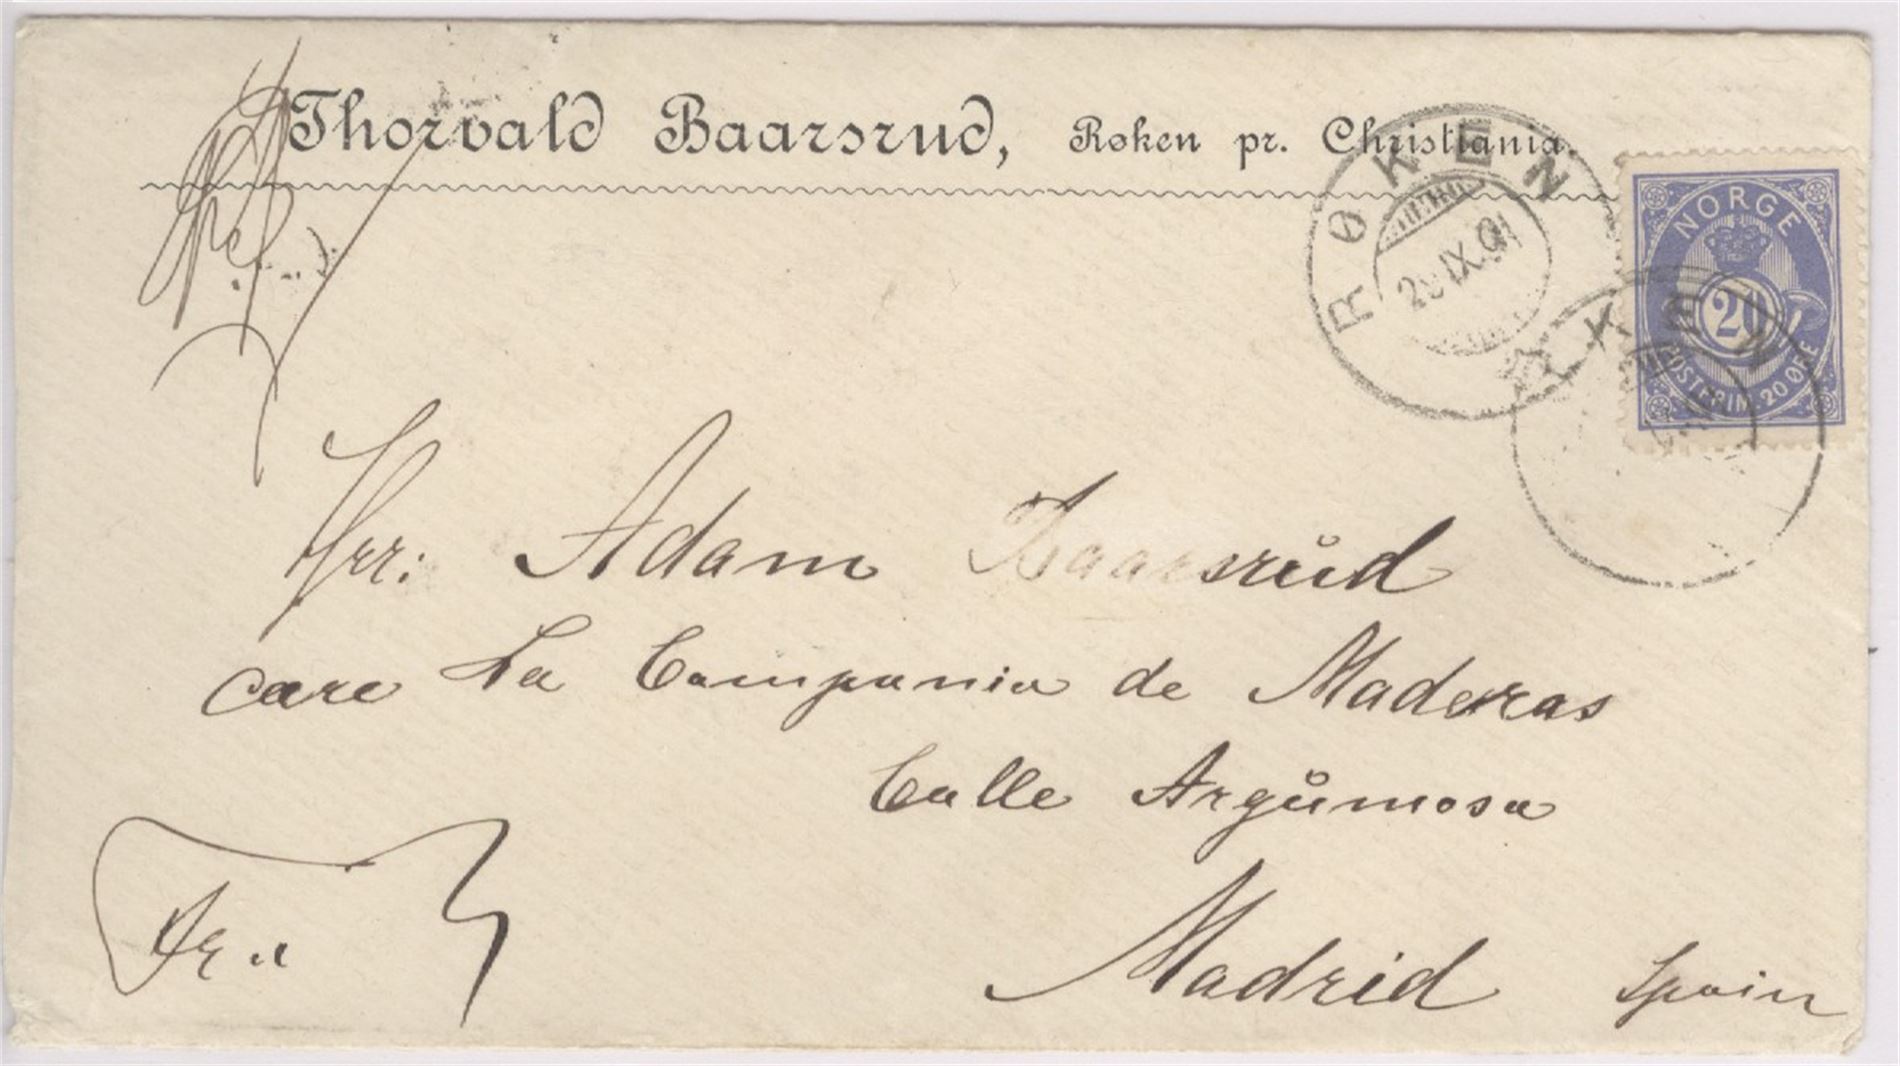 Thorvald Baarsrud, Røken pr. Christiania.
RØKEN
IX.01
NORGE
20
POSTFRIM. 20 ØRE
KEN
Hrr: Adam Baarsrŭd
care La Compania de Maderas
Calle Argŭmosa
Madrid Spain